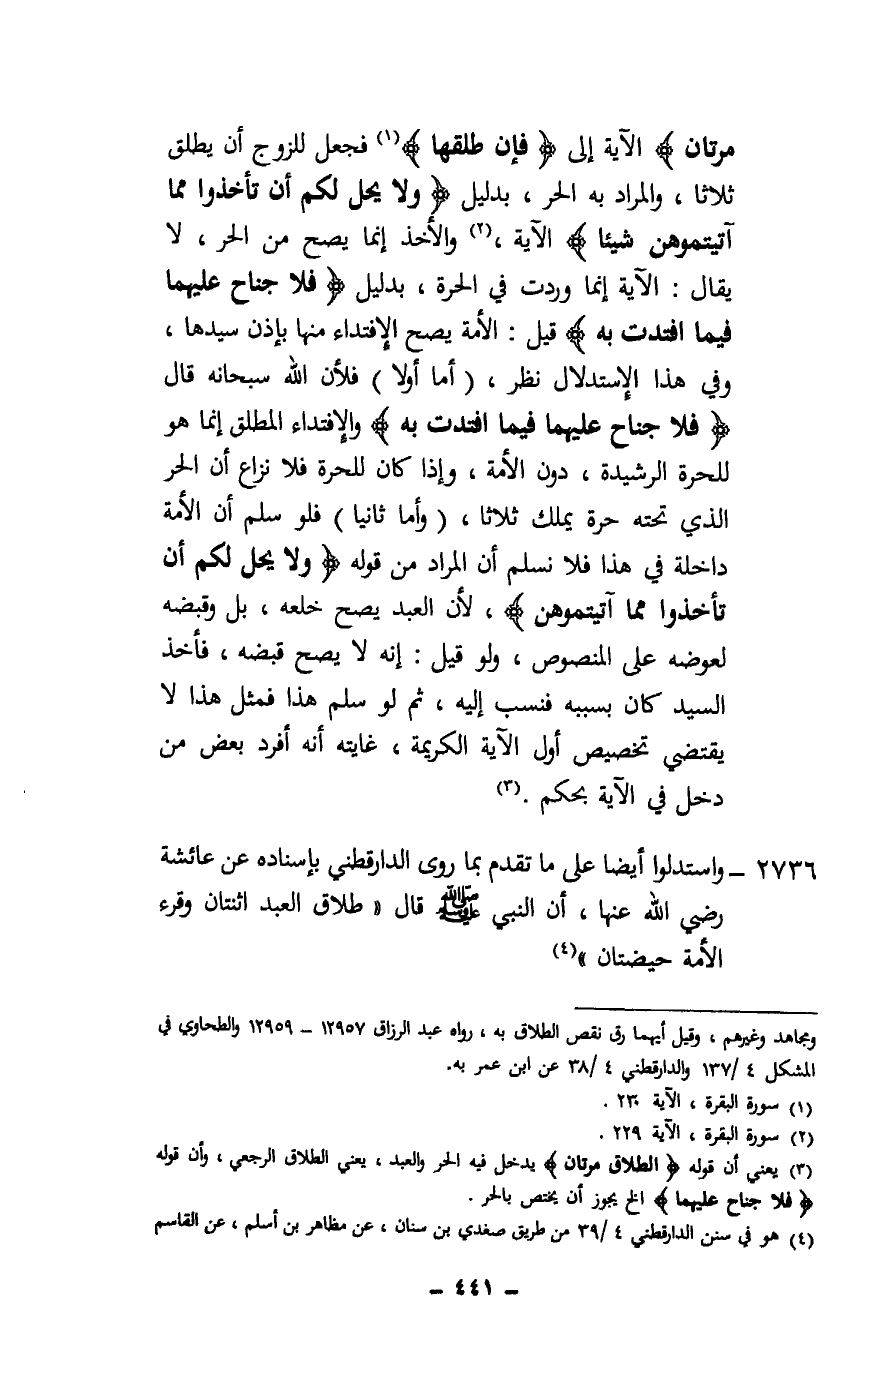 مرتان ﴾ الآية إلى ﴿ فإن طلقها ﴾(١) فجعل للزوج أن يطلق
ثلاثا ، والمراد به الحر ، بدليل ﴿ ولا يحل لكم أن تأخذوا مما
آتيتموهن شيئا ﴾ الآية ،(٢) والأخذ إنما يصح من الحر ، لا
يقال : الآية إنما وردت في الحرة ، بدليل ﴿ فلا جناح عليهما
فيما افتدت به ﴾ قيل : الأمة يصح الإفتداء منها بإذن سيدها ،
وفي هذا الإستدلال نظر ، ( أما أولا ) فلأن الله سبحانه قال
﴿ فلا جناح عليهما فيما افتدت به ﴾ والإفتداء المطلق إنما هو
للحرة الرشيدة ، دون الأمة ، وإذا كان للحرة فلا نزاع أن الحر
الذي تحته حرة يملك ثلاثا ، ( وأما ثانيا ) فلو سلم أن الأمة
داخلة في هذا فلا نسلم أن المراد من قوله ﴿ ولا يحل لكم أن
تأخذوا مما آتيتموهن ﴾ ، لأن العبد يصح خلعه ، بل وقبضه
لعوضه على المنصوص ، ولو قيل : إنه لا يصح قبضه ، فأخذ
السيد كان بسببه فنسب إليه ، ثم لو سلم هذا فمثل هذا لا
يقتضي تخصيص أول الآية الكريمة ، غايته أنه أفرد بعض من
دخل في الآية بحكم .(٣)
٢٧٣٦ ـ واستدلوا أيضا على ما تقدم بما روى الدارقطني بإسناده عن عائشة
رضي الله عنها ، أن النبي ﷺ قال « طلاق العبد اثنتان وقرء
الأمة حيضتان »(٤)
ومجاهد وغيرهم ، وقيل أيهما رق نقص الطلاق به ، رواه عبد الرزاق ١٢٩٥٧ ــ ١٢٩٥٩ والطحاوي في
المشكل ٤ /١٣٧ والدارقطني ٤ /٣٨ عن ابن عمر به.
(١) سورة البقرة ، الآية ٢٣٠ .
(٢) سورة البقرة ، الآية ٢٢٩ .
(٣) يعني أن قوله ﴿ الطلاق مرتان ﴾ يدخل فيه الحر والعبد ، يعني الطلاق الرجعي ، وأن قوله
﴿ فلا جناح عليهما ﴾ الخ يجوز أن يختص بالحر .
(٤) هو في سنن الدارقطني ٤ /٣٩ من طريق صغدي بن سنان ، عن مظاهر بن أسلم ، عن القاسم
ــ ٤٤١ ــ